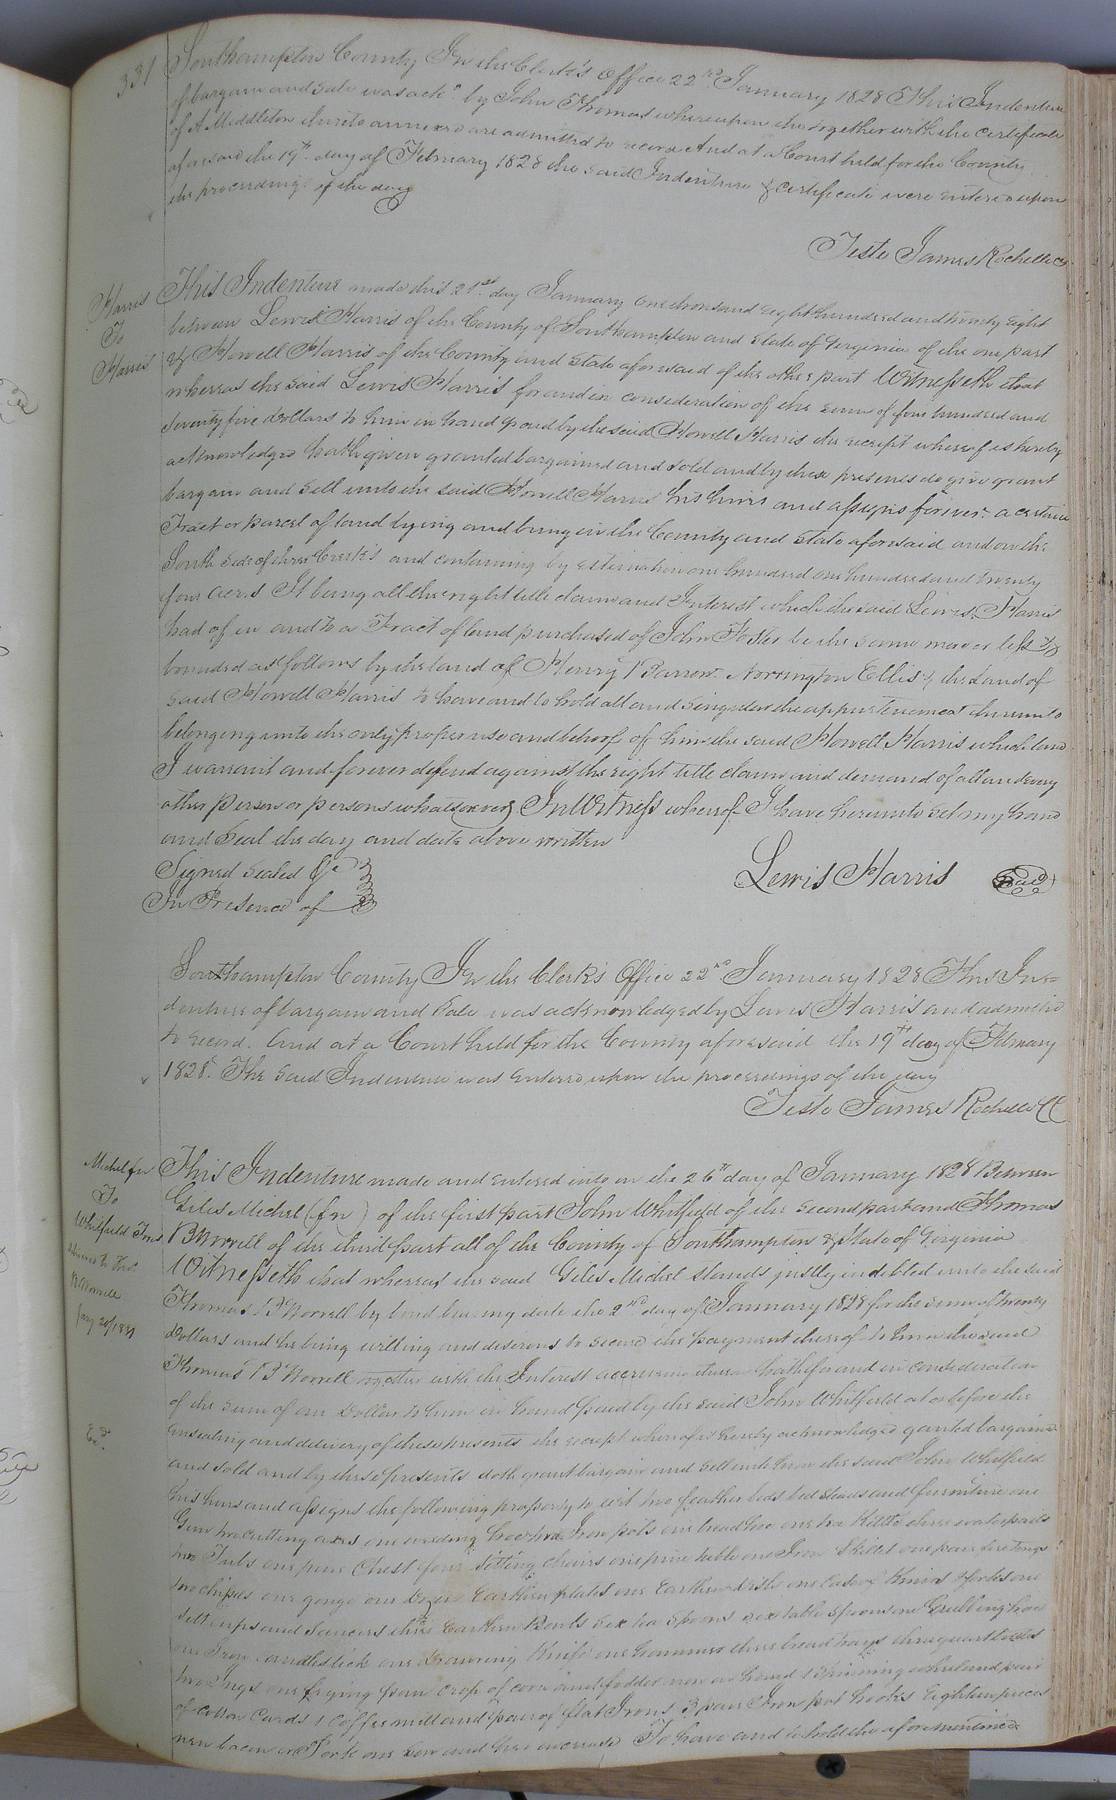 331
Southampton County In the Clerk's Office 22nd January 1828 This Indenture
of bargain and sale was ackd by John Thomas whereupon the together with the certificate
of A Middleton thereto annexed are admitted to record And at a Court held for the County
aforesaid the 19th day of February 1828 the said Indenture & certificate were entered upon
the proceedings of the day
Teste James Rochelle C
Harris
To
Harris
This Indenture made this 21st day January one thousand eight hundred and twenty eight
between Lewis Harris of the County of Southampton and State of Virginia of the one part
& Howell Harris of the County and State aforesaid of the other part Witnesseth that
whereas the said Lewis Harris for and in consideration of the sum of four hundred and
seventy five Dollars to him in hand paid by the said Howell Harris the receipt whereof is hereby
acknowledged hath given granted bargained and sold and by these presents do give grant
bargain and sell unto the said Howell Harris his heirs and assigns forever a certain
Tract or parcel of land lying and being in the County and State aforesaid and on the
South side of three Creek's and containing by estimation one hundred one hundred and twenty
four acres It being all the right title claim and Interest which the said Lewis Harris
had of in and to a Tract of land purchased of John Foster be the same more or less &
bounded as follows by the land of Henry P Barrow Norrington Ellis & the Land of
said Howell Harris to have and to hold all and singular the appurtenances thereunto
belonging unto the only proper use and behoof of him the said Howell Harris which land
I warrant and forever defend against the right title claim and demand of all and every
other person or persons whatsoever In Witness whereof I have hereunto set my hand
and Seal the day and date above written
Signed sealed &c
In Presence of
Lewis Harris Seal
Southampton County In the Clerk's Office 22nd January 1828 This In=
denture of bargain and sale was acknowledged by Lewis Harris and admitted
to record. And at a Court held for the County aforesaid the 19th day of February
1828. The said Indenture was entered upon the proceedings of the day
Teste James Rochelle CC
Michel Jn
To
Whitfield Trus
Jany 20/1831
Ed
This Indenture made and entered into on the 26th day of January 1828 Between
Giles Michel (Jn) of the first part John Whitfield of the second part and Thomas
B Worrell of the third part all of the County of Southampton & State of Virginia
Witnesseth that whereas the said Giles Michel stands justly indebted unto the said
Thomas B Worrell by bond bearing date the 2nd day of January 1828 for the sum of twenty
Dollars and he being willing and desirous to secure the payment thereof to him the said
Thomas B Worrell together with the Interest accruing thereon hath for and in consideration
of the sum of one Dollar to him in hand paid by the said John Whitfield at or before the
ensealing and delivery of these presents the receipt whereof is hereby acknowledged granted bargained
and sold and by these presents doth grant bargain and sell unto him the said John Whitfield
his heirs and assigns the following property to wit two feather beds bed steads and furniture one
Gun two cutting axes one weeding hoe two Iron pots one broad hoe one tea kittle three water pails
two Tubs one pine Chest four Sitting chairs one pine table one Iron Skillet one pair fire tongs
two chissels one gouge one Dozen Earthen plates one Earthen dish one Dozen Knives & forks one
sett cups and saucers three Earthen Bowls six tea spoons six table spoons one Grubbing hoe
one Iron candlestick one Drawing Knife one hammer three bread trays three quart bottles
two Jugs one frying pan crop of corn and fodder now on hand 1 Spinning wheel and pair
of cotton Cards 1 Coffee mill and 1 pair of flat Irons 3 pair Iron pot hooks Eighteen pieces
new bacon or Pork one Sow and her increase To have and to hold the aforementioned